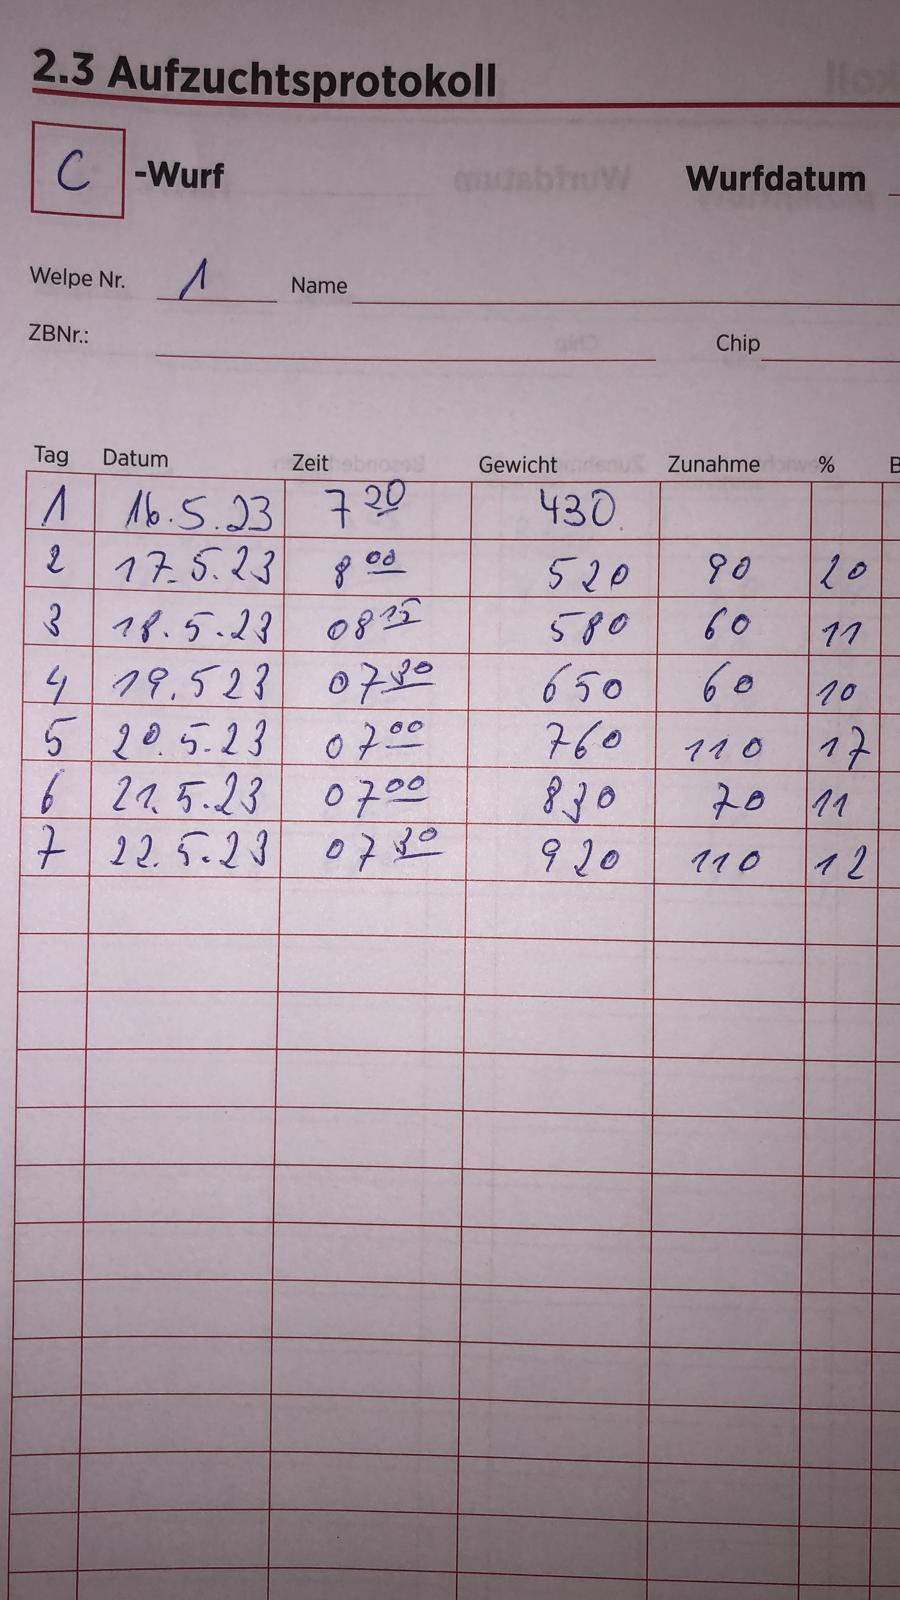 2.3 Aufzuchtsprotokoll
C -Wurf Wurfdatum
Welpe Nr. 1 Name
ZBNr.: Chip
Tag Datum Zeit Gewicht Zunahme % B
1 16.5.23 7 20 430.
2 17.5.23 8 00 520 90 20
3 18.5.23 08 15 580 60 11
4 19.523 07 30 650 60 10
5 20.5.23 07 00 760 110 17
6 21.5.23 07 00 830 70 11
7 22.5.23 07 30 920 110 12